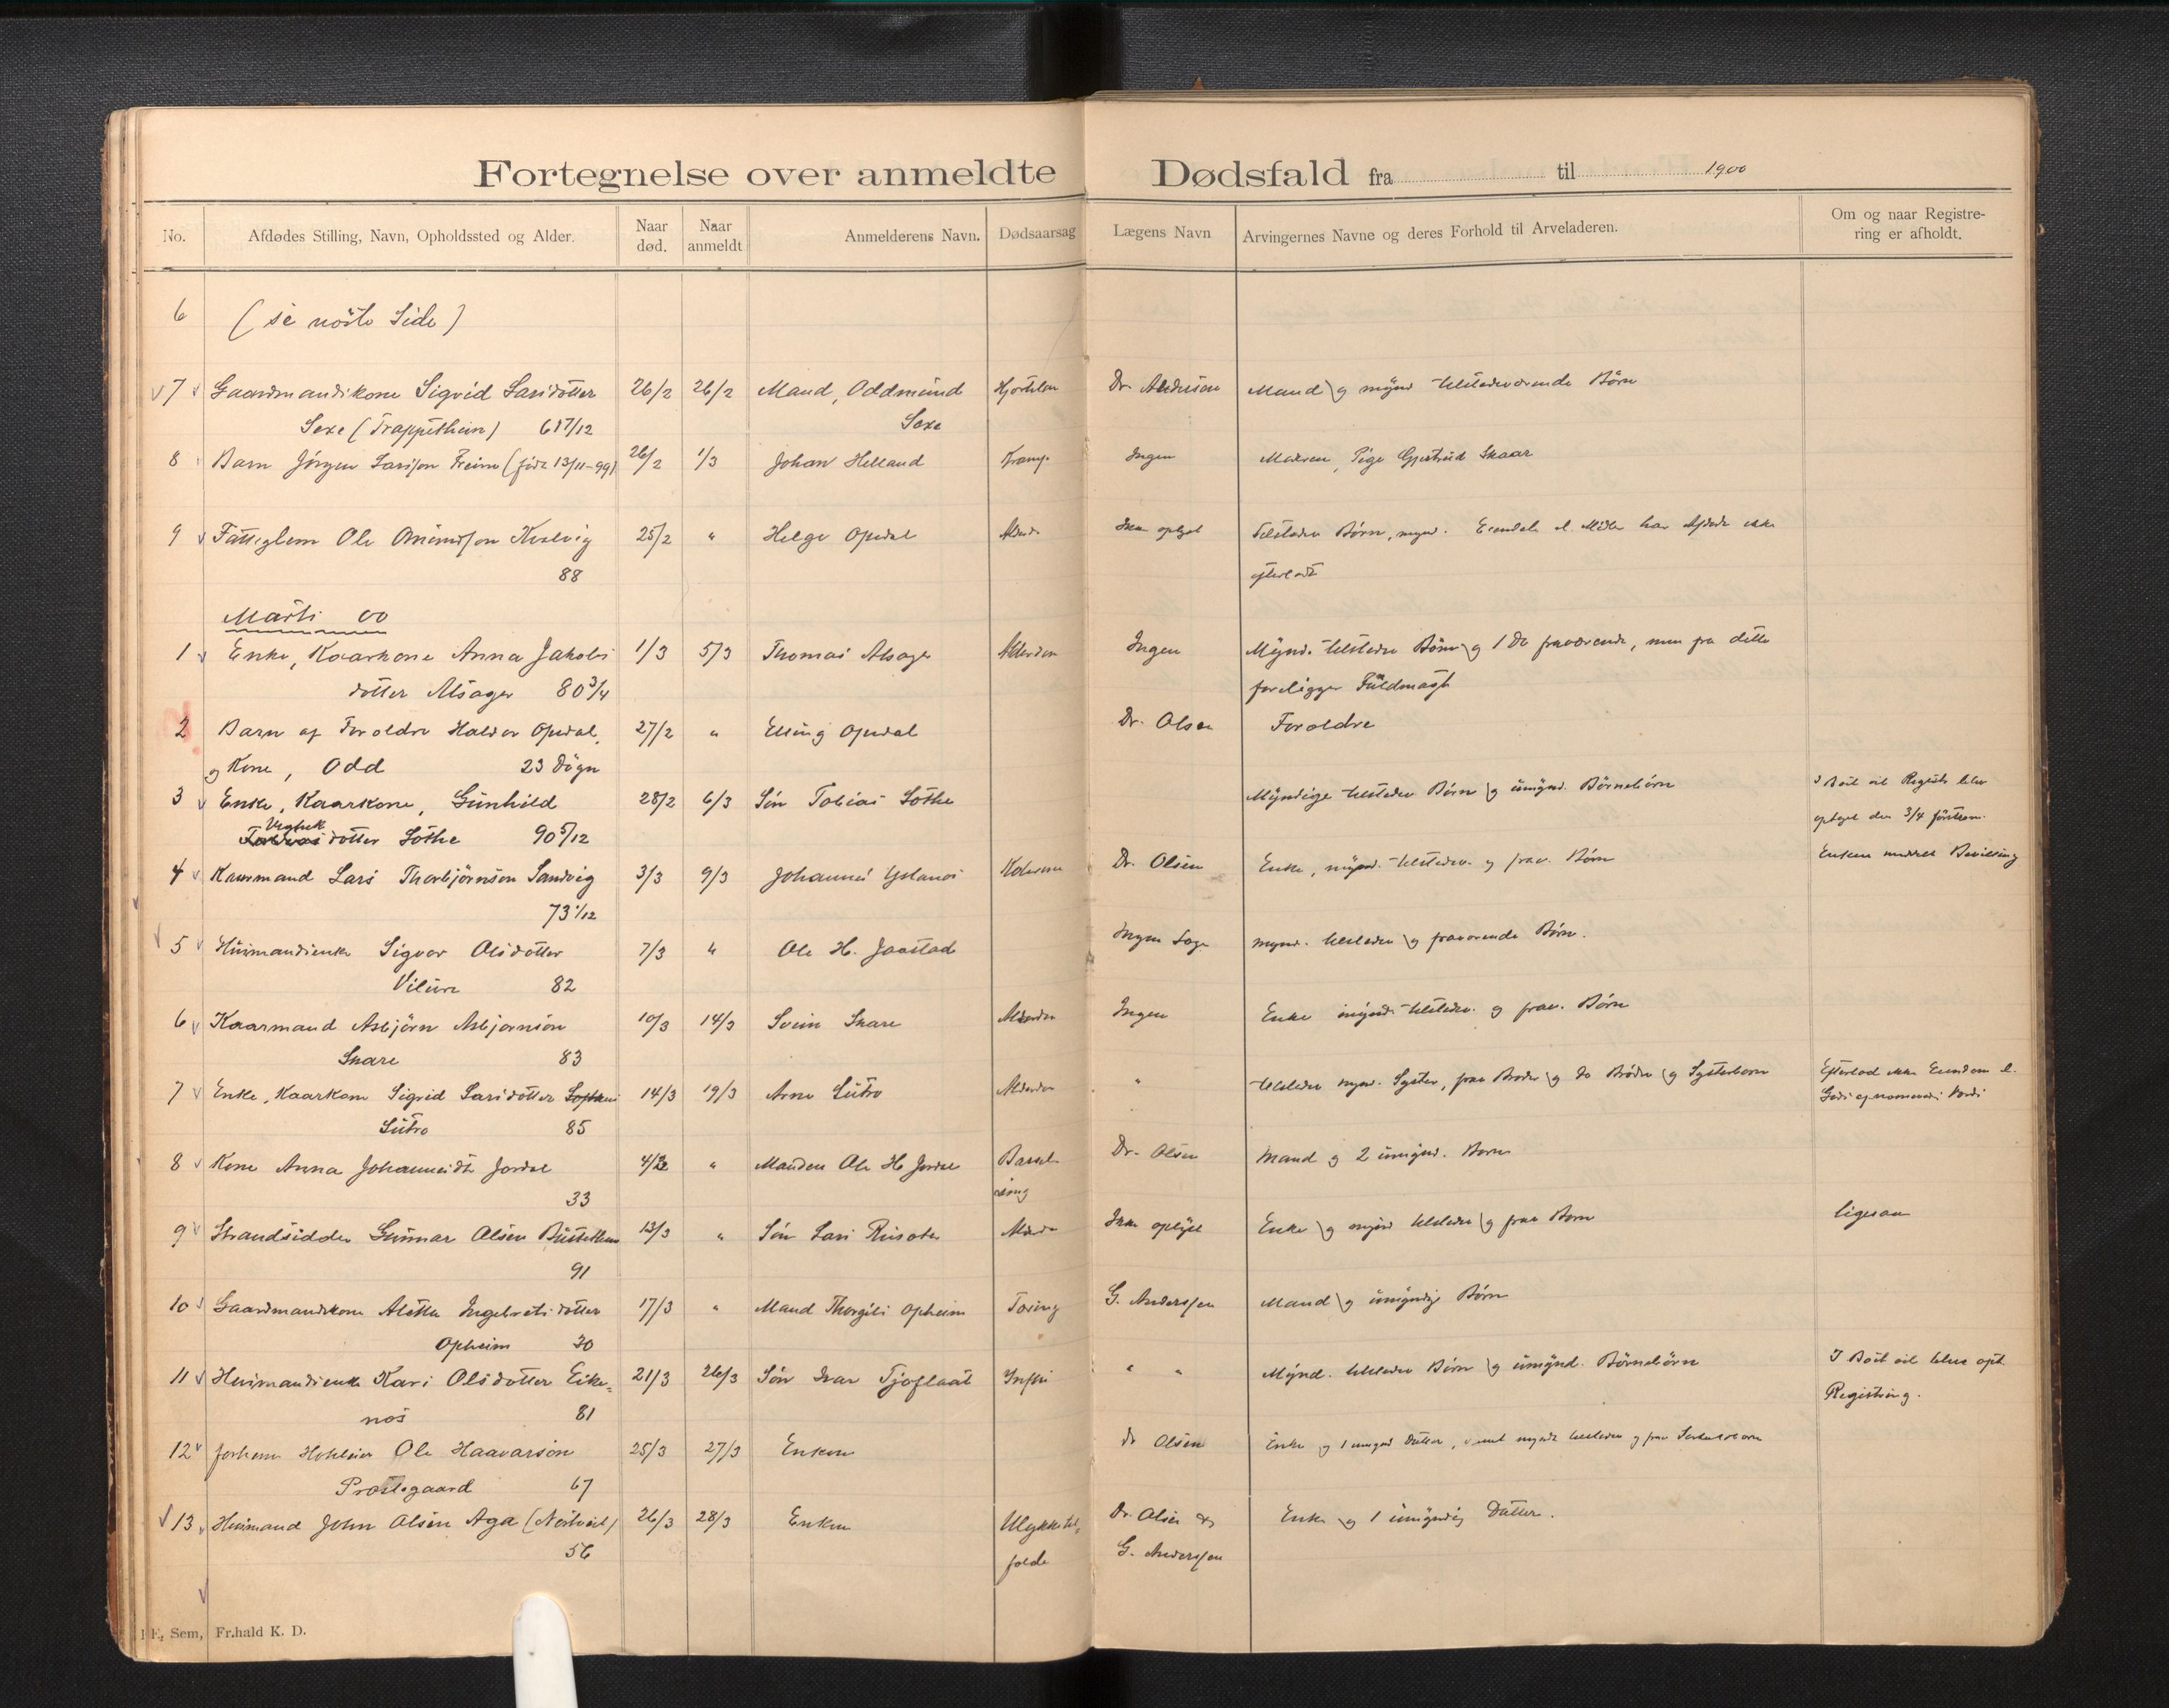 Fortegnelse over anmeldte Dødsfald fra til 1900
No. Afdødes Stilling, Navn, Opholdssted og Alder. Naar død. Naar anmeldt Anmelderens Navn. Dødsaarsag Lægens Navn Arvingernes Navne og deres Forhold til Arveladeren. Om og naar Registrering er afholdt.
6 (se næste Side)
7 Gaardmandskone Sigrid Larsdotter 26/2 26/2 Mand, Oddmund Dr. Mand og mynd. tilstedeværende Børn
Sexe ( ) 6 17/12 Sexe
8 Barn Jørgen Larsson (føde 13/11-99) 26/2 1/3 Johan Helland Krampe Ingen Moderen, Pige Gjertrud Skaar
9 Fattiglem Ole 25/2 " Helge Opedal Ikke oplyst Tilstedev Børn, mynd. Eiendele el. Midler har Afdøde ikke
88 efterladt
Marts 00
1 Enke, Kaarkone Anna Jakobs 1/3 5/3 Thomas Alsager Alderdom Ingen Mynd. tilstedev Børn og 1 Do fraværende, men fra dette
dotter Alsager 80 3/4 foreligger Fuldmagt
2 Barn af Forældre Haldor Opedal, 27/2 " Elling Opedal Dr. Olsen Forældre
og Kone, Odd 23 Døgn
3 Enke, Kaarkone, Gunhild 28/2 6/3 Søn Tobias Lothe Myndige tilstedev Børn og umynd. Børnebørn I Boet vil Registr blive
dotter Lothe 90 5/12 optaget den 3/4 førstkom.
4 Kaarmand Lars Thorbjørnson Sandvig 3/3 9/3 Johannes Dr. Olsen Enke, mynd. tilstedev. og frav. Børn Enken meddelt Bevilling
73 1/12
5 Husmandsenke Sigvor Olsdotter 7/3 " Ole H. Jaastad Ingen Læge mynd. tilstedev og fraværende Børn.
Vilure 82
6 Kaarmand Asbjørn Asbjørnson 10/3 14/3 Svein Skare Alderdom Ingen Enke mynd. tilstedev. og frav. Børn
Skare 83
7 Enke, Kaarkone Sigrid Larsdotter 14/3 19/3 Arne Lutro Alderdom " tilstedev mynd. Syster, frav Broder og do Brødre og Systerbørn Efterlod ikke Eiendom el.
Lutro 85 Gods af
8 Kone Anna Johannesdtr Jordal 4/3 " Manden Ole H Jordal Barsel- Dr. Olsen Mand og 2 umynd. Børn
33
9 Strandsidder Gunnar Olsen 13/3 " Søn Lars Ikke oplyst Enke og mynd tilstedev og frav Børn ligesaa
91
10 Gaardmandskone Aletta Ingebretsdotter 17/3 " Mand Thorgils Opheim Tæring G. Anderssen Mand og umyndige Børn
Opheim 30
11 Husmandsenke Kari Olsdotter Eike- 21/3 26/3 Søn Ivar Tjoflaat " " Mynd. tilstedev Børn og umynd. Børnebørn I Boet vil blive opt.
nes 81 Registring.
12 forhenv Hoteleier Ole Haavarson 25/3 27/3 Enken Dr Olsen Enke og 1 umynd Datter, samt mynd tilstedev og frav Særkuldsbørn
Prestegaard 67
13 Husmand John Olsen Aga ( ) 26/3 28/3 Enken Ulykkestil- Dr. Olsen og Enke og 1 umyndig Datter.
56 fælde G. Anderssen
Sem, Fr.hald K. D.